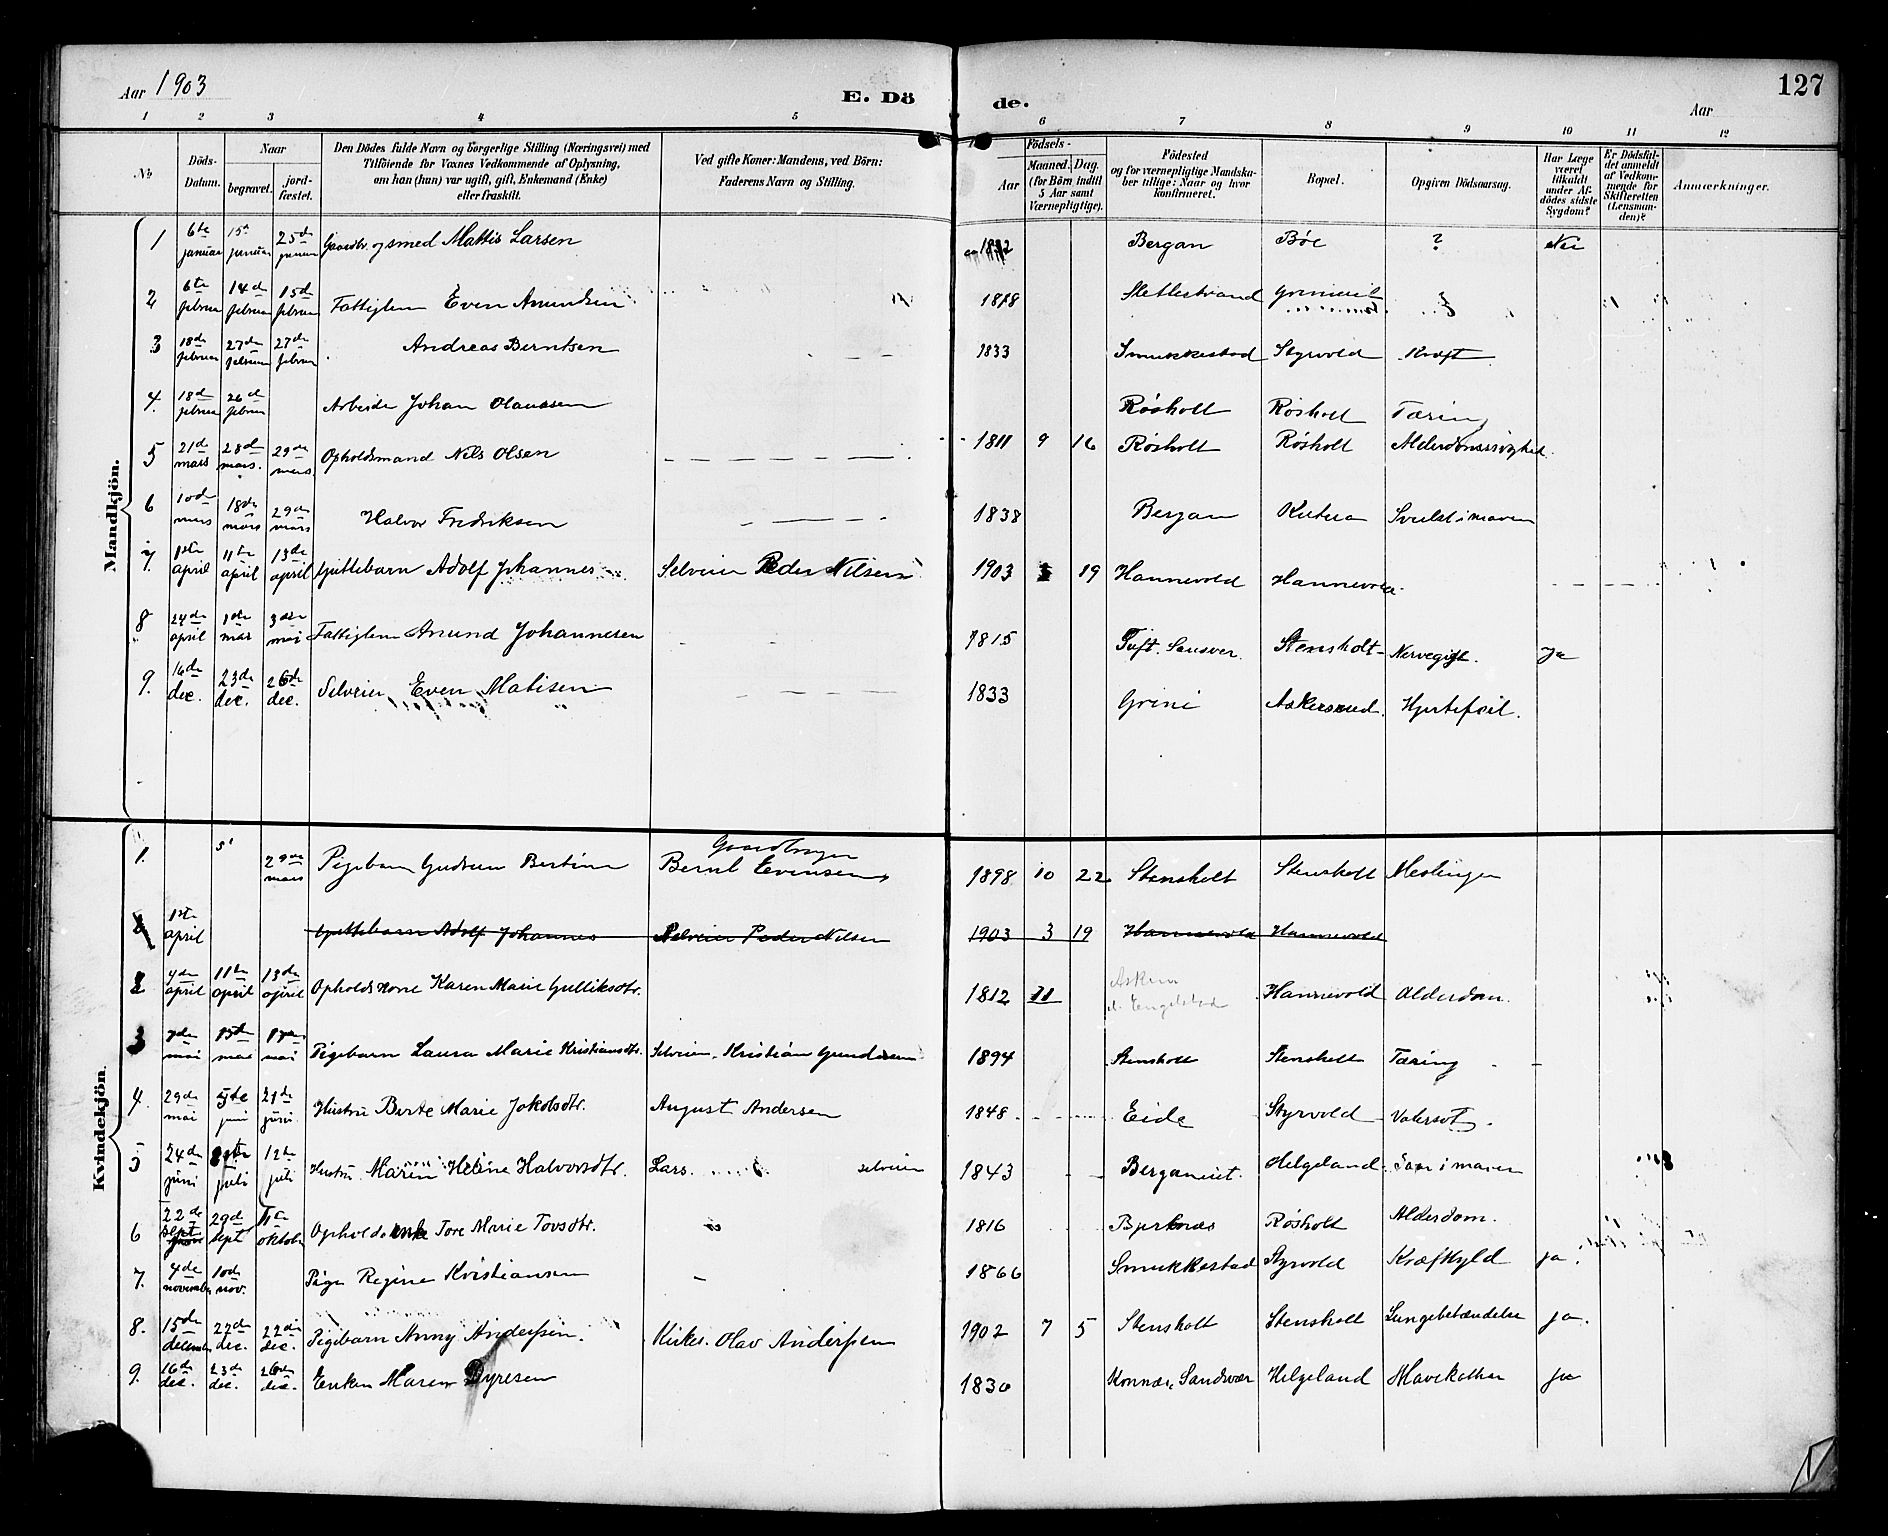 127
Aar 1903
E. Dö
de.
Aar
1 2 3 4 5 6 7 8 9 10 11 12
No
Döds-Datum.
Naar
begravet.
jord-fæstet.
Den Dödes fulde Navn og borgerlige Stilling (Næringsvei) med
Tilföiende for Voxnes Vedkommende af Oplysning,
om han (hun) var ugift, gift, Enkemand (Enke)
eller fraskilt.
Ved gifte Koner: Mandens, ved Börn:
Faderens Navn og Stilling.
Födsels-
Aar
Maaned. Dag.
(for Börn indtil
5 Aar samt
Værnepligtige).
Födested
og for værnepligtige Mandska-
ber tillige: Naar og hvor
konfirmeret.
Bopæl.
Opgiven Dödsaarsag.
Har Læge
været
tilkaldt
under Af-
dödes sidste
Sygdom?
Er Dödsfal-
det anmeldt
af Vedkom-
mende for
Skifteretten
(Lensman-
den)?
Anmærkninger.
Mandkjön.
1 6te januar 15de januar 25de januar Gaardbr. og smed Mattis Larsen Bergan Böe ? Nei
2 6te februar 14de februar 15de februar Fattiglem Even Amundsen 1818 Slettestrand ?
3 18de februar 27de februar 27de februar Andreas Berntsen 1833 Smukkestad Styrvold Kræft
4. 18de februar 26de februar Arbeider Johan Olaussen Rösholt Rösholt Tæring
5 21de mars 28de mars. 29de mars Opholdsmand Nils Olsen 1811 9 16 Rösholt Rösholt Alderdomssvaghed.
6 10de mars 18de mars 29de mars Halvor Fredriksen 1838 Bergan Svulst i maven
7. 1ste april 11te april 13de april Guttebarn Adolf Johannes Selveier Peder Nilsen 1903 3 19 Hannevold Hannevold
8 24de april 1ste mai 3die mai Fattiglem Amund Johannesen 1815 Tuft. Sansver. Stensholt Nervegigt. Ja
9. 16de dec. 23de dec. 26de dec. Selveier Even Matisen 1833 Grini Askersrud. Hjertefeil.
Kvindekjön.
1. 29de mars Pigebarn Gudrun Bertine Gaardbruger
Bernt Evensen 1898 10 22 Stensholt Stensholt Meslinger
2 1ste april Guttebarn Adolf Johannes Selveier Peder Nilsen 1903 3 19 Hannevold Hannevold
2 4de april 11te april 13de april Opholdskone Karen Marie Gulliksdtr. 1812 11 Hannevold Alderdom.
d. Engelstad
3 7de mai 15de mai 17de mai Pigebarn Laura Marie Kristiansdtr. Selveier. Kristian Gundersen 1894 Stensholt Stensholt Tæring
4. 29de mai 5te juni 21de juni. Hustru Berte Marie Jakobsdtr. August Andersen 1848. Eide Styrvold Vatersot.
5 24de juni juli 12te juli Hustru Maren Heline Halvorsdtr. Lars selveier 1843 Berganeiet. Helgeland. Saar i maven
6 22de sept 29de sept 11te oktober Opholdsenke Tore Marie Tovsdtr. 1816 Bjerknæs Rösholt Alderdom.
7. 4de november 10de nov. Pige Regine Kristiansen 1866 Smukkestad Styrvold Kræfthyld ja.
8. 15de december 22de dec. 22de dec. Pigebarn Anny Anderssen. Kirkes. Olav Anderssen 1902 7 5 Stensholt Stensholt Lungebetændelse ja.
9. 16de dec. 23de dec. 26de dec. Enken Maren Dyresen 1830 Komnæs, Sandsvær Helgeland Mavekatar Ja